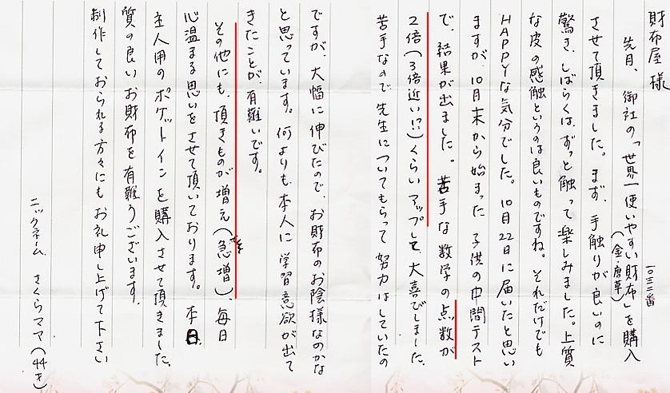 財布屋様
一〇三二番
先月、御社の「世界一使いやすい財布」を購入
(金・唐草)
させて頂きました。まず、手触りが良いのに
驚き、しばらくは、ずっと触って楽しみました。上質
な皮の感触というのは良いものですね。それだけでも
HAPPYな気分でした。10月22日に届いたと思い
ますが、10月末から始まった子供の中間テスト
で、結果が出ました。苦手な数学の点数が
2倍(3倍近い!?)くらいアップして、大喜びしました。
苦手なので、先生についてもらって努力はしていたの
ですが、大幅に伸びたので、お財布のお陰様なのかな
と思っています。何よりも、本人に学習意欲が出て
きたことが、有難いです。
その他にも、頂きものが増え(急増)、毎日
心温まる思いをさせて頂いております。本日、
主人用のポケットインを購入させて頂きました。
質の良いお財布を有難うございます。
制作しておられる方々にもお礼申し上げて下さい
ニックネーム さくらママ(44才)